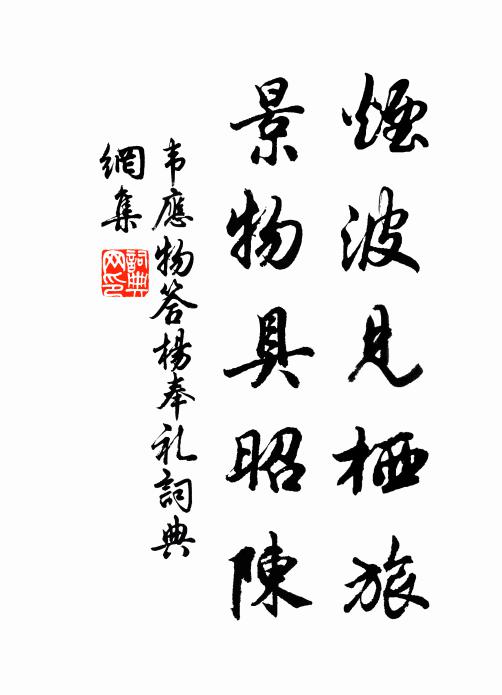 煙波見栖旅
景物具昭陳
韦應物答楊奉礼詞典
網集
詞典
网印